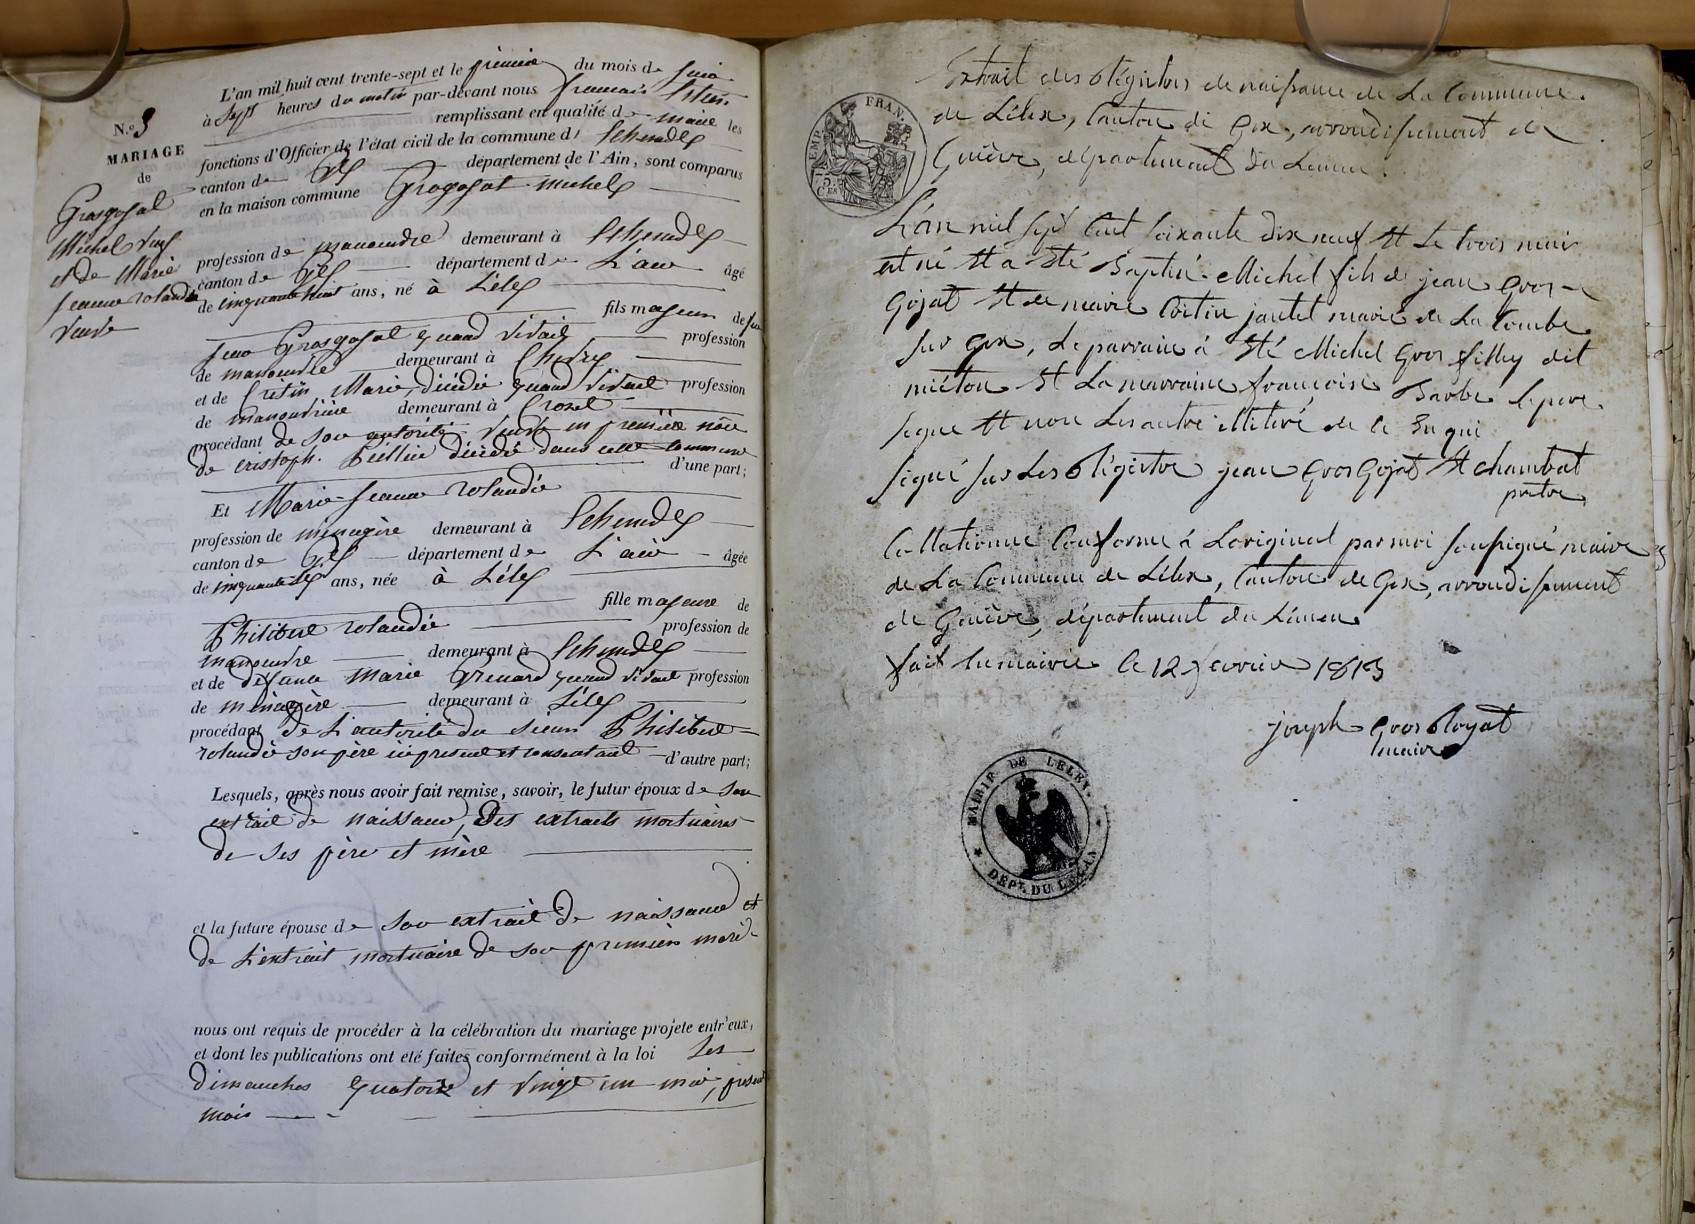 N.º 3
MARIAGE
de
Grosgojat
Michel veuf
et de Marie
Jeanne rolandée
veuve
L'an mil huit cent trente-sept et le premier du mois de juin
à sept heures du matin par-devant nous français
remplissant en qualité de maire les
fonctions d'Officier de l'état civil de la commune d'
canton de Gex département de l'Ain, sont comparus
en la maison commune Grogojat michel
profession de manouvrié demeurant à
canton de Gex département de L'ain âgé
de cinquante huit ans, né à Lélex
fils majeur de feu
jean Grosgojat quand vivait profession
de manouvrié demeurant à
et de Cretin Marie, décédée quand vivait profession
de manouvrière demeurant à Crozet
procédant de son autorité veuve en première nôce
de cristoph. décédé dans cette commune
d'une part;
Et Marie-jeanne rolandée
profession de ménagère demeurant à
canton de Gex département de L'ain âgée
de cinquante ans, née à Lélex
fille majeure de
Philibert rolandée profession de
manouvre demeurant à
et de défunte Marie Grenard quand vivait profession
de ménagère demeurant à Lélex
procédant de L'autorité du sieur Philibert
rolandée son père ici présent et consentant d'autre part;
Lesquels, après nous avoir fait remise, savoir, le futur époux de son
extrait de naissance, des extraits mortuaires
de ses père et mère
et la future épouse de son extrait de naissance et
de L'extrait mortuaire de son premier mari
nous ont requis de procéder à la célébration du mariage projete entr'eux,
et dont les publications ont été faites conformément à la loi Les
dimanches quatorze et vingt un mai, present
mois
EMP. FRAN.
75 Ces
Extrait des Régistres de naissance de La Commune
de Lélex, Canton de Gex, arrondissement de
Genève, département du Leman.
L'an mil sept cent soixante dix neuf et Le trois mai
est né et a été Baptisé Michel fils de jean Gros
Gojat et de marie Crétin jantet marié de La Combe
sur Gex, Le parrain a été Michel Gros fillex dit
miéton et La marraine françoise Barbe le pere
signe et non Les autre illiteré de ce Enqui
signé sur Les Régistre jean Gros Gojat et chambat
pretre
Collationné Conforme à Loriginal par moi soussigné maire
de La Commune de Lélex, Canton de Gex, arrondissement
de Genève, département du Léman
fait en mairie le 12 fevrier 1813
joseph Gros Royat
maire
MAIRIE DE LELEX
DEPT. DU LEMAN